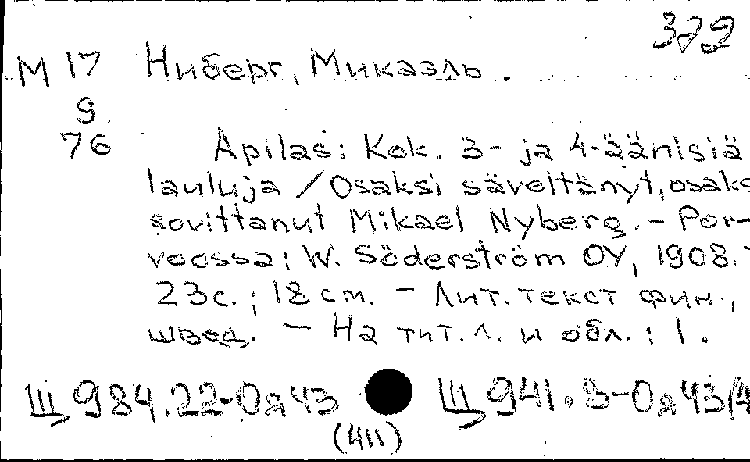 322
М 17 Ниберг, Микаэль.
9
76 Apilas: Kok. 3- ja 4-äänisiä
lauluja / Osaksi säveltänyt, osaks
sovittanut Mikael Nyberg. - Por-
voossa: W. Söderström OY, 1908. -
23 с.; 18 см. - Лит. текст фин.,
швед. - На тит. л. и обл.: 1.
Щ984.22-0я43 Щ941.3-0я43/4
(411)